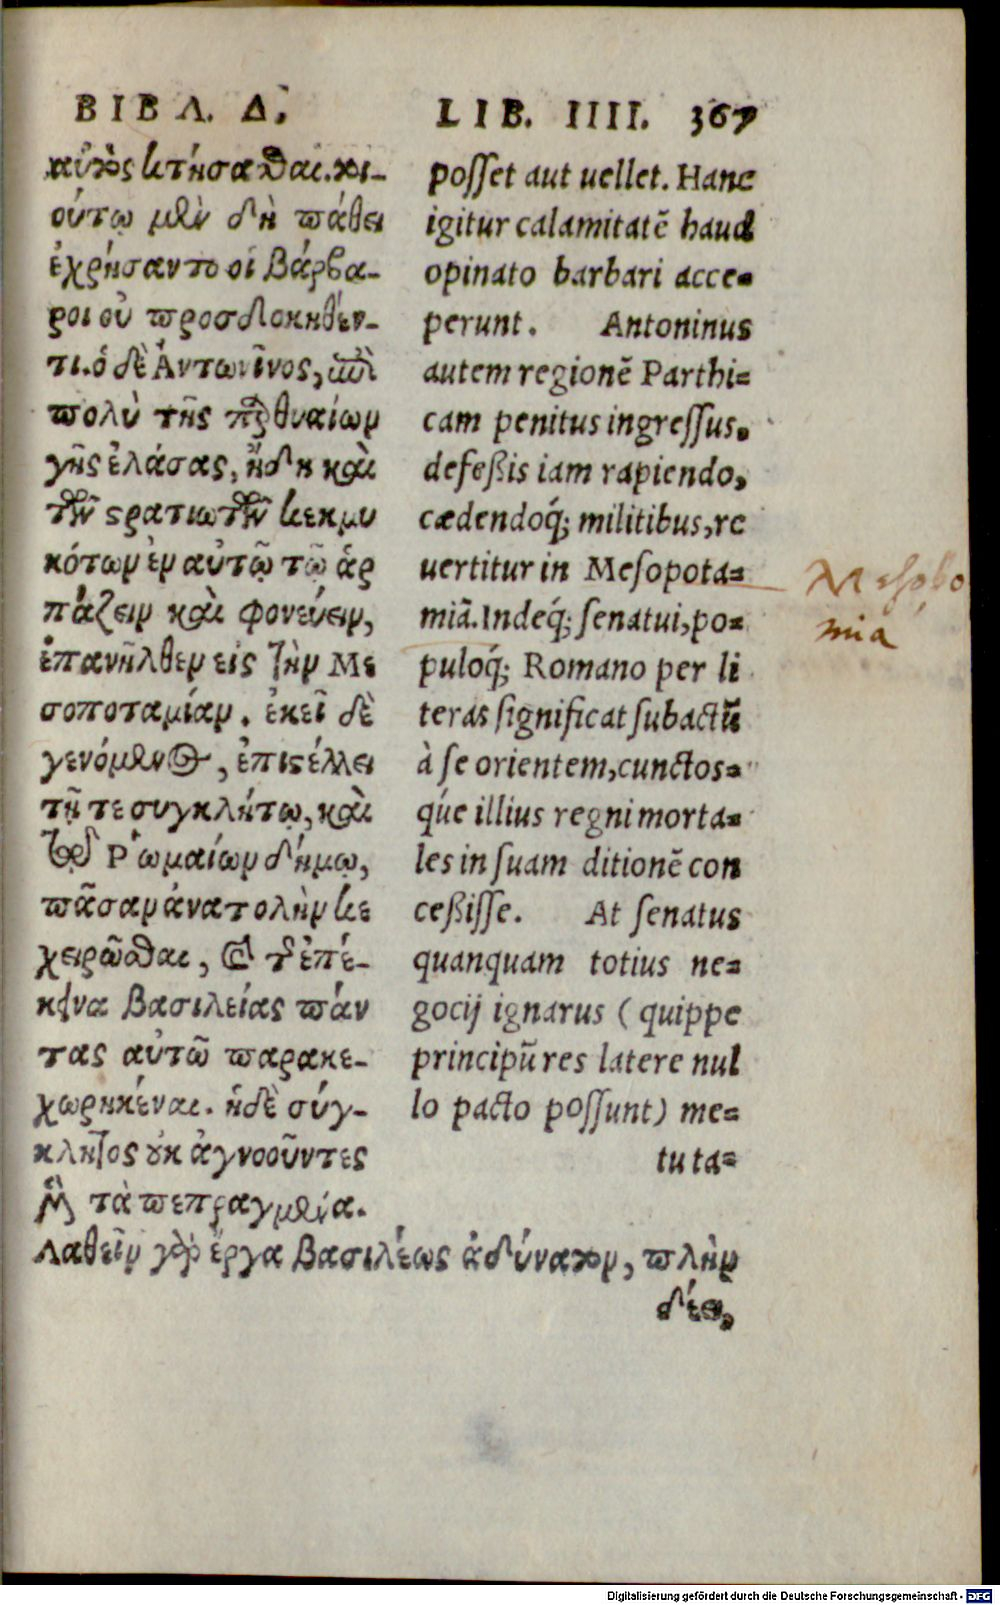 ΒΙΒΛ. Δ.
αὐτὸς κτήσασθαι. τοι-
ούτῳ μὲν δὴ πάθει
ἐχρήσαντο οἱ βάρβα-
ροι οὐ προσδοκηθέν-
τι. ὁ δὲ Ἀντωνῖνος, ἐπὶ
πολὺ τῆς παρθυαίων
γῆς ἐλάσας, ἤδη καὶ
τῶν στρατιωτῶν κεκμη
κότων ἐν αὐτῷ τῷ ἁρ
πάζειν καὶ φονεύειν,
ἐπανῆλθεν εἰς τὴν Με
σοποταμίαν. ἐκεῖ δὲ
γενόμενος, ἐπιστέλλει
τῇ τε συγκλήτῳ, καὶ
τῷ Ῥωμαίων δήμῳ,
πᾶσαν ἀνατολὴν κε
χειρῶσθαι, καὶ τῆς ἐπέ-
κεινα βασιλείας πάν
τας αὐτῷ παρακε-
χωρηκέναι. ἡ δὲ σύγ-
κλητος οὐκ ἀγνοοῦντες
μὲν τὰ πεπραγμένα.
λαθεῖν γὰρ ἔργα βασιλέως ἀδύνατον, πλὴν
δέει,
LIB. IIII. 367
posset aut uellet. Hanc
igitur calamitatē haud
opinato barbari acce-
perunt. Antoninus
autem regionē Parthi-
cam penitus ingressus,
defeßis iam rapiendo,
cædendoq́; militibus, re
uertitur in Mesopota-
miā. Indeq́; senatui, po-
puloq́; Romano per li
teras significat subactū
à se orientem, cunctos-
q́ue illius regni morta-
les in suam ditionē con
ceßisse. At senatus
quanquam totius ne-
gocij ignarus ( quippe
principū res latere nul
lo pacto possunt) me-
tu ta-
Mesopo
mia
Digitalisierung gefördert durch die Deutsche Forschungsgemeinschaft - DFG